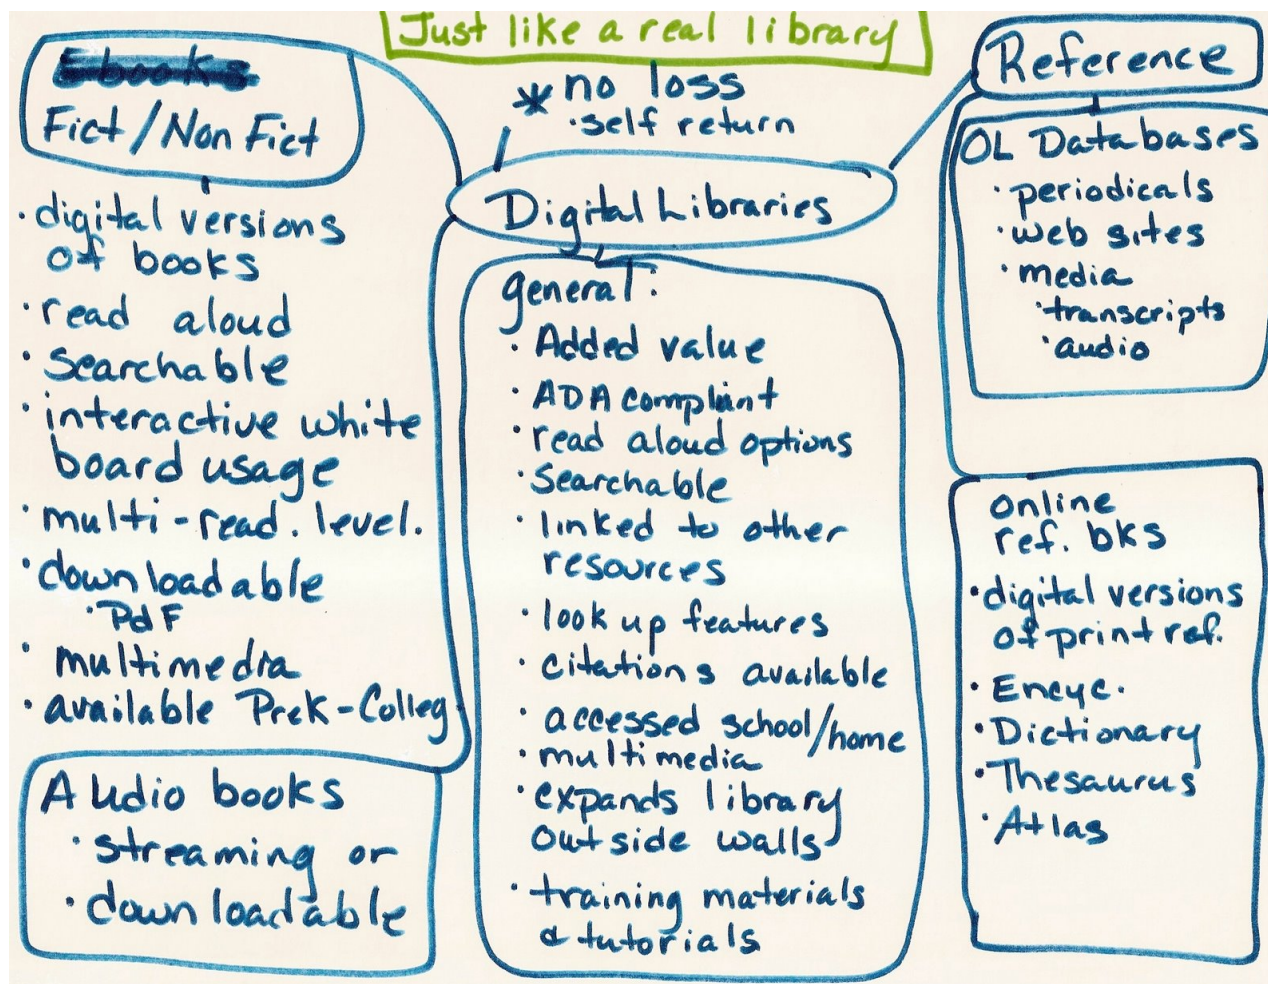 Just like a real library
* no loss
· self return
Digital Libraries
Ebooks
Fict/Non Fict
· digital versions
of books
· read aloud
· searchable
· interactive white
board usage
· multi-read. level.
· downloadable
· Pdf
· multimedia
· available PreK-Colleg
Audio books
· streaming or
· downloadable
general:
· Added value
· ADA complaint
· read aloud options
· searchable
· linked to other
resources
· look up features
· citations available
· accessed school/home
· multimedia
· expands library
outside walls
· training materials
& tutorials
Reference
OL Databases
· periodicals
· web sites
· media
· transcripts
· audio
Online
ref. bks
· digital versions
of print ref.
· Encyc.
· Dictionary
· Thesaurus
· Atlas